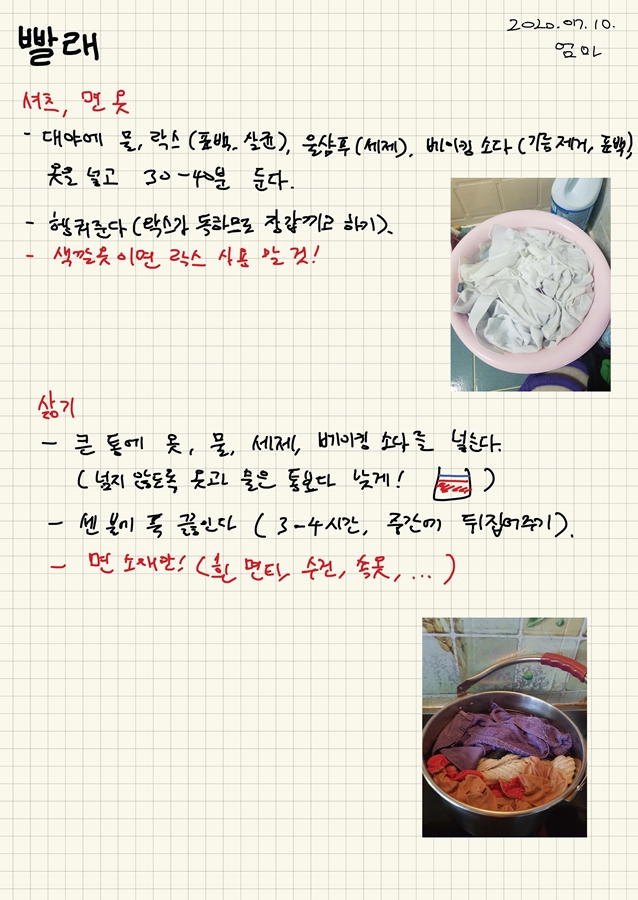 빨래
2020.07.10.
엄마
셔츠, 면 옷
- 대야에 물, 락스(표백, 살균), 울샴푸(세제), 베이킹 소다(기능제거, 표백)
옷을 넣고 30-40분 둔다.
- 헹궈준다(락스가 독하므로 장갑끼고 하기).
- 색깔옷이면 락스 사용 말 것!
삶기
- 큰 통에 옷, 물, 세제, 베이킹 소다를 넣는다.
(넘지 않도록 옷과 물은 통보다 낮게! )
- 센 불에 푹 끓인다 (3-4시간, 중간에 뒤집어주기).
- 면 소재만! (흰 면티, 수건, 속옷, ...)